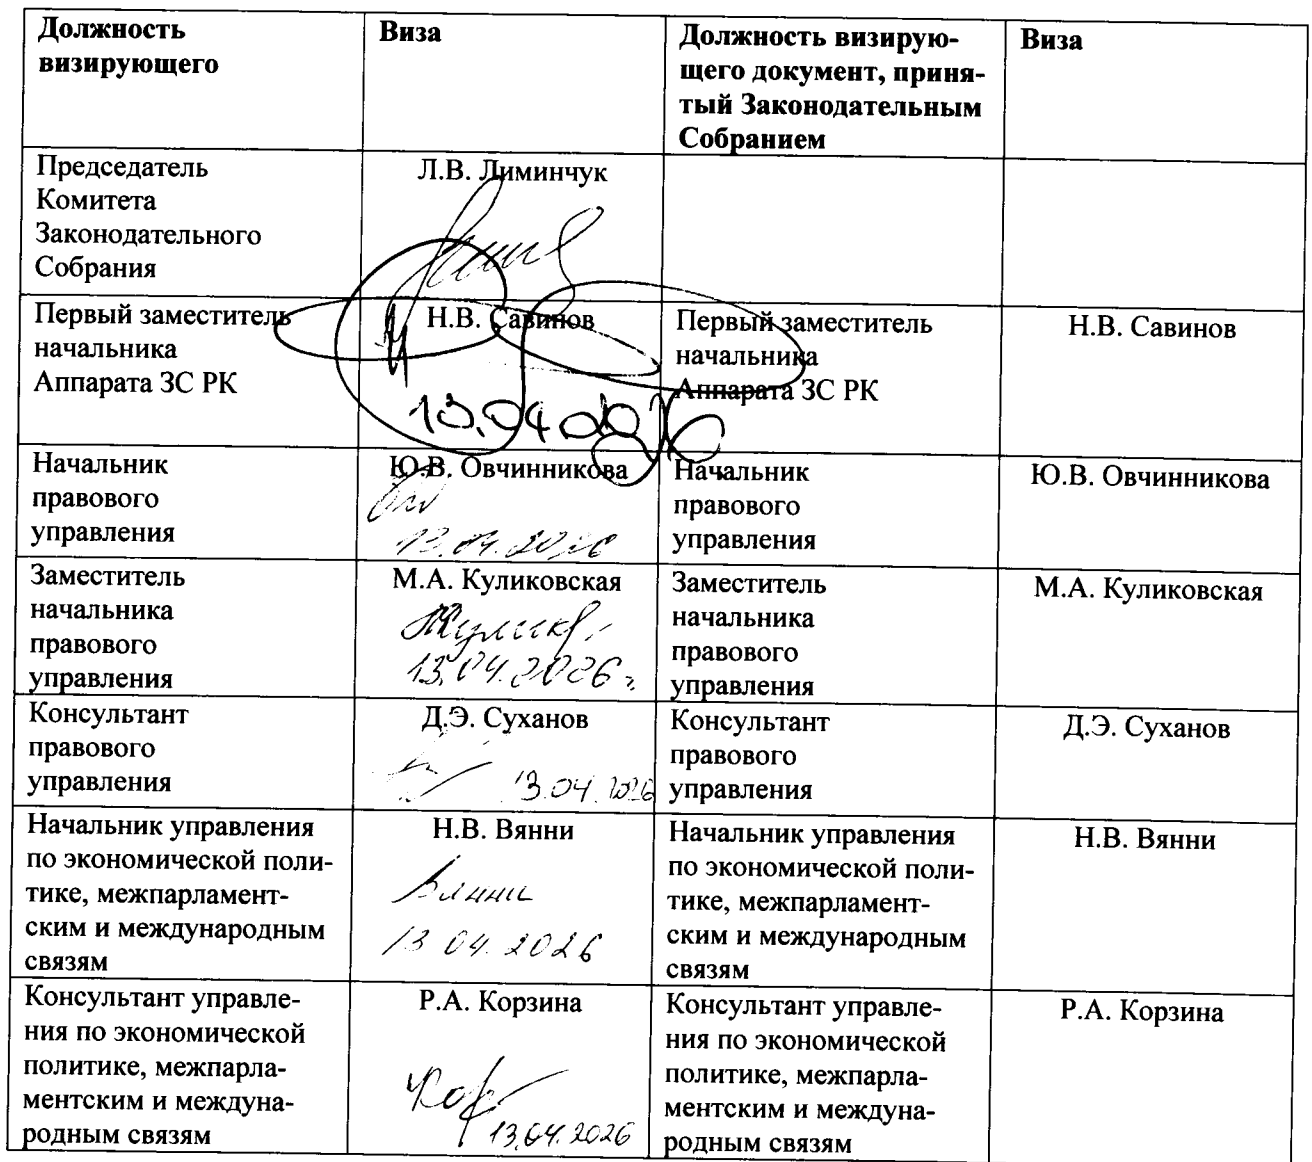 Должность
визирующего
Виза
Должность визирую-
щего документ, приня-
тый Законодательным
Собранием
Виза
Председатель
Комитета
Законодательного
Собрания
Л.В. Лиминчук
Первый заместитель
начальника
Аппарата ЗС РК
Н.В. Савинов
13.04.2026
Первый заместитель
начальника
Аппарата ЗС РК
Н.В. Савинов
Начальник
правового
управления
Ю.В. Овчинникова
13.04.2026
Начальник
правового
управления
Ю.В. Овчинникова
Заместитель
начальника
правового
управления
М.А. Куликовская
13.04.2026 г.
Заместитель
начальника
правового
управления
М.А. Куликовская
Консультант
правового
управления
Д.Э. Суханов
13.04.2026
Консультант
правового
управления
Д.Э. Суханов
Начальник управления
по экономической поли-
тике, межпарламент-
ским и международным
связям
Н.В. Вянни
Вянни
13 04.2026
Начальник управления
по экономической поли-
тике, межпарламент-
ским и международным
связям
Н.В. Вянни
Консультант управле-
ния по экономической
политике, межпарла-
ментским и междуна-
родным связям
Р.А. Корзина
13.04.2026
Консультант управле-
ния по экономической
политике, межпарла-
ментским и междуна-
родным связям
Р.А. Корзина